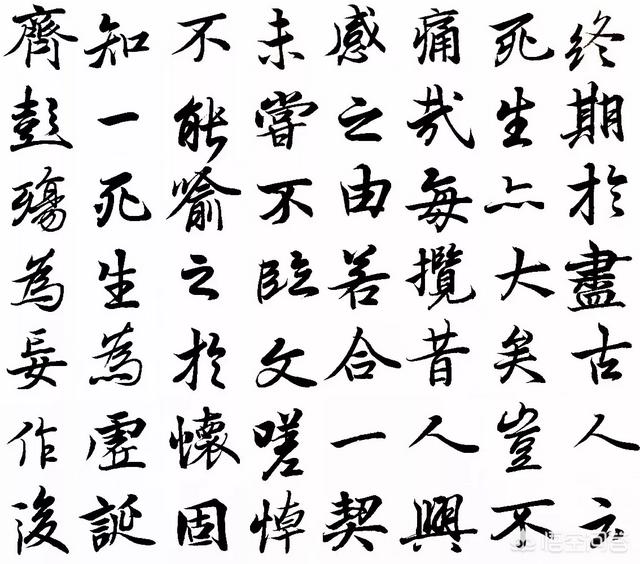 終期於盡古人云
死生亦大矣豈不
痛哉每攬昔人興
感之由若合一契
未嘗不臨文嗟悼
不能喻之於懷固
知一死生為虛誕
齊彭殤為妄作後
悟空问答